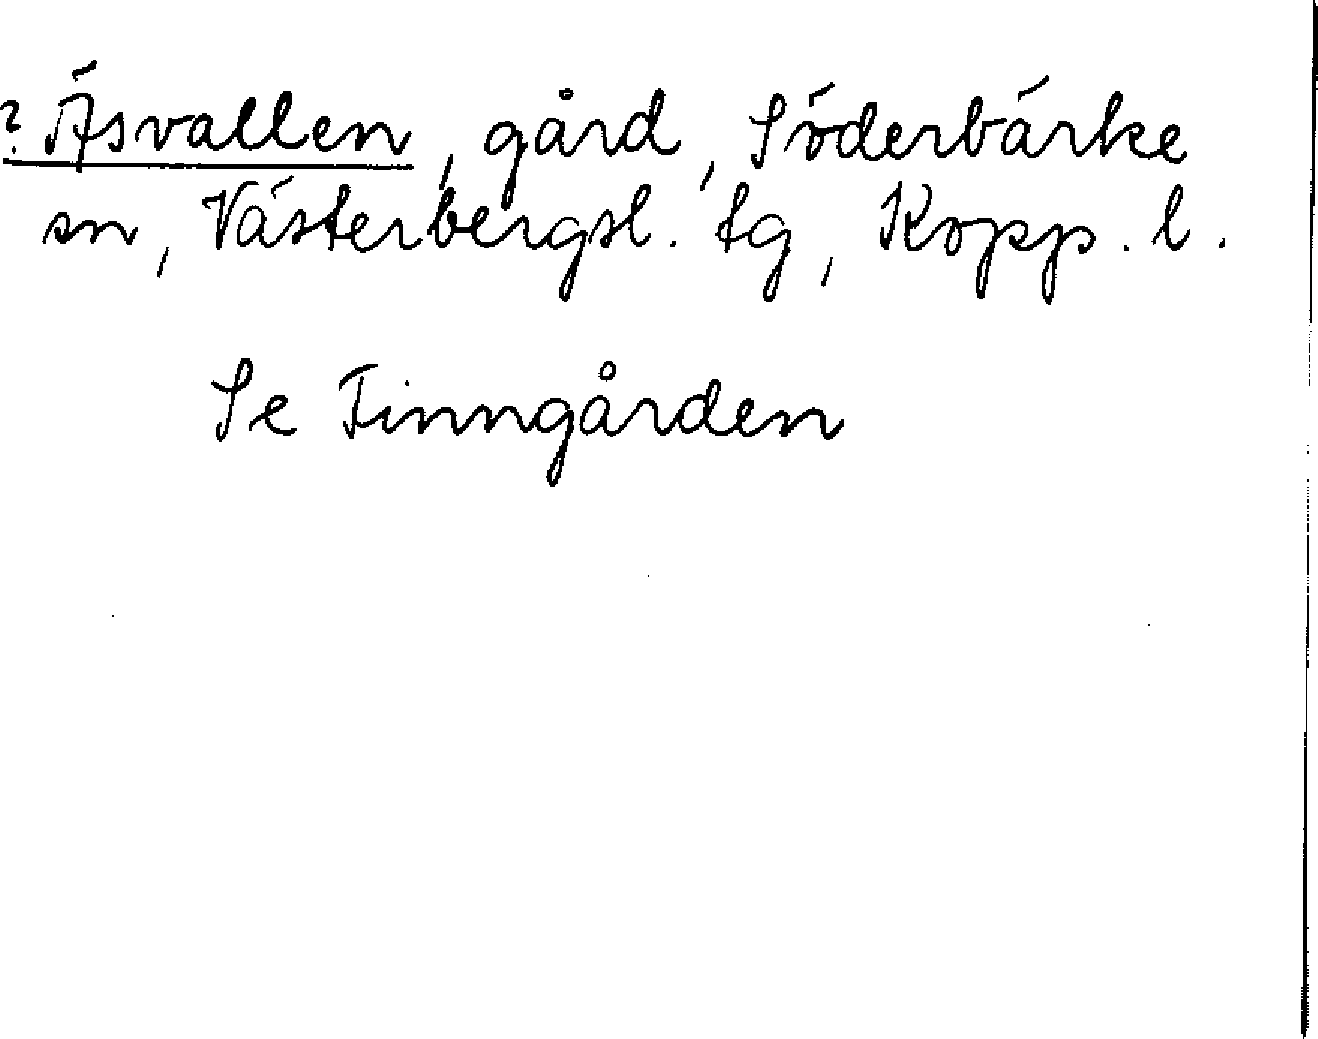 ? Äsvallen, gård, Söderbärke
sn, Västerbergsl. tg, Kopp. l.
Se Finngården